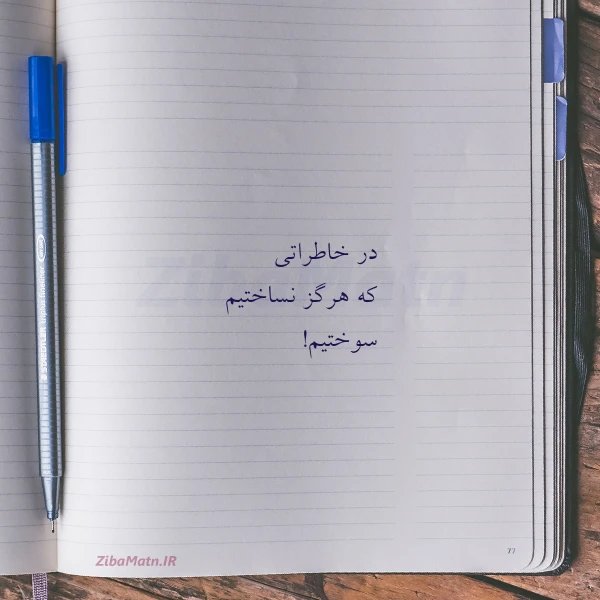 در خاطراتی
که هرگز نساختیم
سوختیم!
ZibaMatn
77
ZibaMatn.IR